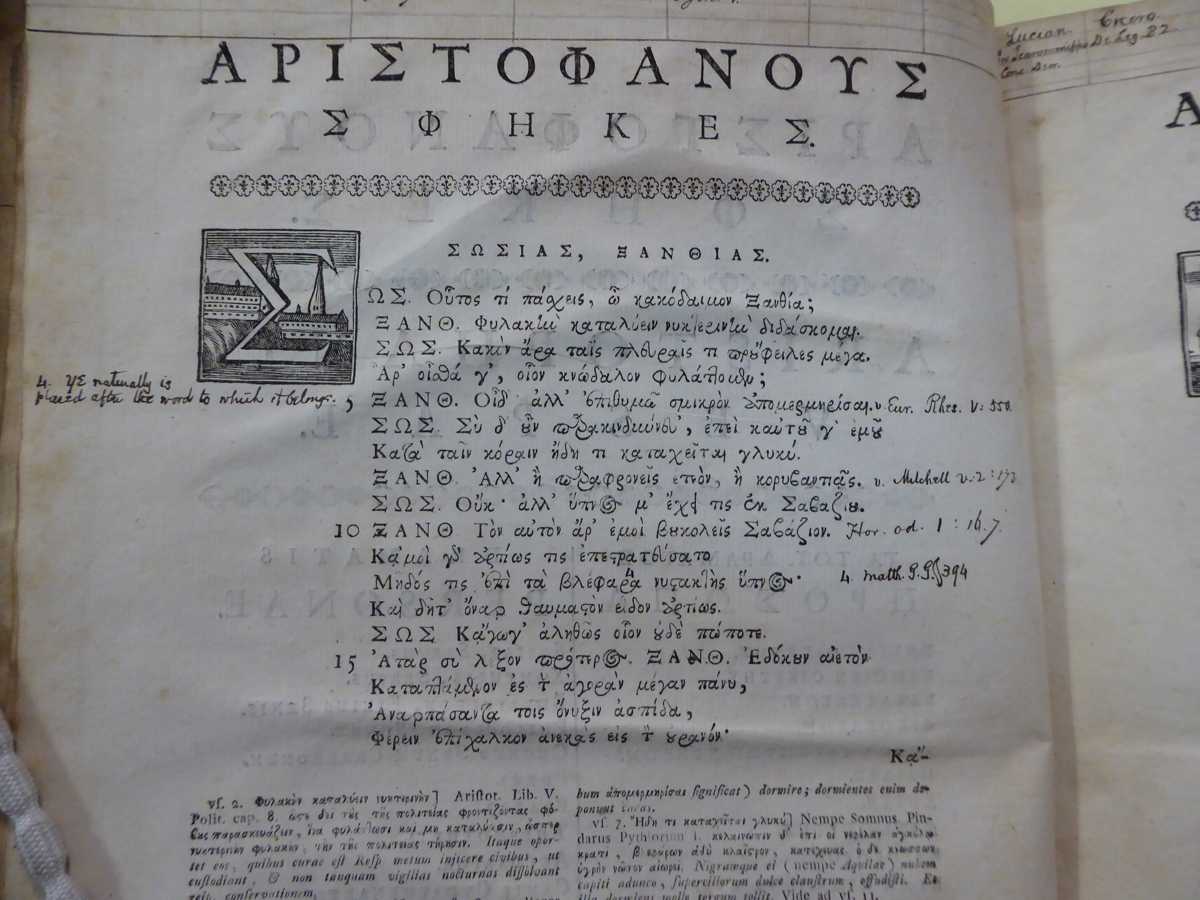 Lucian. Cicero.
De Leg. B2
Conc. Deor.
ΑΡΙΣΤΟΦΑΝΟΥΣ
ΣΦΗΚΕΣ.
ΣΩΣΙΑΣ, ΞΑΝΘΙΑΣ.
ΣΩΣ. Οὗτος τί πάσχεις, ὦ κακόδαιμον Ξανθία;
ΞΑΝΘ. Φυλακὴν καταλύειν νυκτερινὴν διδάσκομαι.
ΣΩΣ. Κακὸν ἄρα ταῖς πλευραῖς τι προὔφειλες μέγα.
Ἀρ' οἶσθά γ', οἷον κνώδαλον φυλάττομεν;
4. γε naturally is
placed after the word to which it belongs.
ΞΑΝΘ. Οἶδ' ἀλλ' ἐπιθυμῶ σμικρὸν ἀπομερμηρίσαι. v. Eur. Rhes. V. 550.
ΣΩΣ. Σὺ δ' οὖν παρακινδύνευ', ἐπεὶ καὐτοῦ γ' ἐμοῦ
Κατὰ ταῖν κόραιν ἤδη τι καταχεῖται γλυκύ.
ΞΑΝΘ. Ἀλλ' ἢ παραφρονεῖς ἐτεὸν, ἢ κορυβαντιᾷς. v. Mitchell v. 2: 173
ΣΩΣ. Οὔκ· ἀλλ' ὕπνος μ' ἔχει τις ἐκ Σαβαζίου.
10 ΞΑΝΘ Τὸν αὐτὸν ἄρ' ἐμοὶ βουκολεῖς Σαβάζιον. Hor. od. 1: 16. 7.
Κᾀμοὶ γὰρ ἀρτίως τις ἐπεστρατεύσατο
Μῆδός τις ἐπὶ τὰ βλέφαρα νυστακτὴς ὕπνος· 4. Matth. G. G. § 394
Καὶ δῆτ' ὄναρ θαυμαστὸν εἶδον ἀρτίως.
ΣΩΣ Κᾄγωγ' ἀληθῶς οἷον οὐδὲ πώποτε.
15 Ἀτὰρ σὺ λ ξον πρότερος. ΞΑΝΘ. Ἐδόκουν αἰετὸν
Καταπτάμενον ἐς τὴν ἀγορὰν μέγαν πάνυ,
Ἀναρπάσαντα τοῖς ὄνυξιν ἀσπίδα,
Φέρειν ἐπίχαλκον ἀνεκὰς εἰς τὸν οὐρανόν·
Κᾄ-
vſ. 2. Φυλακὴν καταλύειν νυκτερινὴν] Ariſtot. Lib. V.
Polit. cap. 8. ὥστε δεῖ τοὺς τῆς πολιτείας φροντίζοντας φό-
βους παρασκευάζειν, ἵνα φυλάττωσι καὶ μὴ καταλύωσιν, ὥσπερ
νυκτερινὴν φυλακὴν, τὴν τῆς πολιτείας τήρησιν. Itaque opor-
tet eos, quibus curae eſt Reſp metum injicere civibus, ut
cuſtodiant, & non tanquam vigilias nocturnas diſſolvant
conſervationem,
bum ἀπομερμηρίσαι ſignificat) dormire; dormientes enim de-
ponunt curas.
vſ. 7. Ἤδη τι καταχεῖται γλυκύ] Nempe Somnus. Pin-
darus Pythiorum 1. κελαινῶπιν δ' ἐπί οἱ νεφέλαν ἀγκύλῳ
κρατὶ, βλεφάρων ἁδὺ κλαῖστρον, κατέχευας· ὁ δὲ κνώσσων
ὑγρὸν νῶτον αἰωρεῖ. Nigramque ei (nempe Aquilae) nubem
capiti adunco, ſuperciliorum dulce clauſtrum, offudiſti. Et
illa dormiens molle tergum tollit. Vide ad vſ. 11.